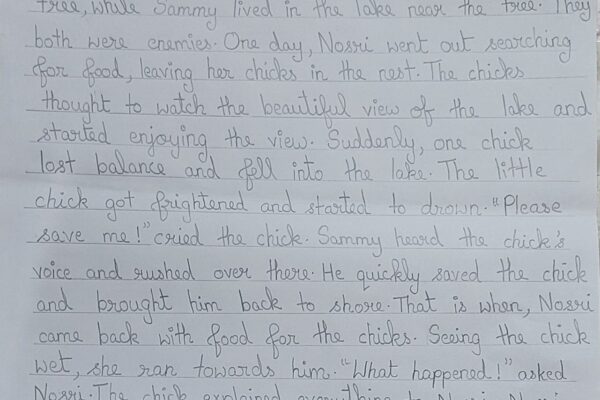 tree, while Sammy lived in the lake near the tree. They
both were enemies. One day, Nosri went out searching
for food, leaving her chicks in the nest. The chicks
thought to watch the beautiful view of the lake and
started enjoying the view. Suddenly, one chick
lost balance and fell into the lake. The little
chick got frightened and started to drown. "Please
save me!" cried the chick. Sammy heard the chick's
voice and rushed over there. He quickly saved the chick
and brought him back to shore. That is when, Nosri
came back with food for the chicks. Seeing the chick
wet, she ran towards him. "What happened!" asked
Nosri. The chick explained everything to Nosri. Nosri